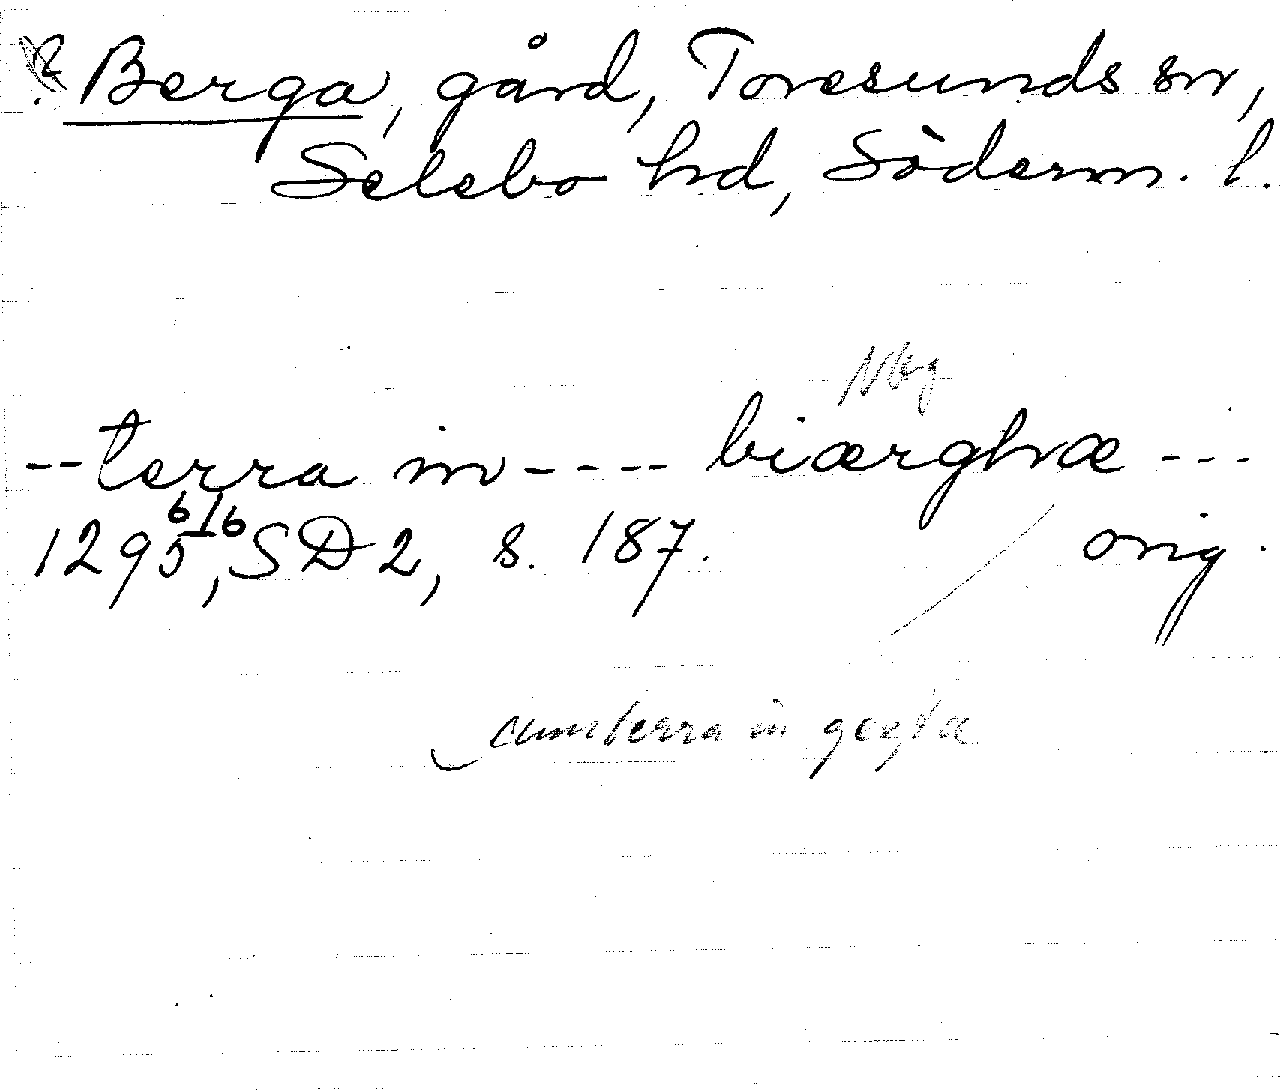 ? Berga, gård, Toresunds sn,
Selebo hd, Söderm. l.
-- terra in ---- biærghæ ---
1295 6/6, SD 2, s. 187. orig.
cum terra in